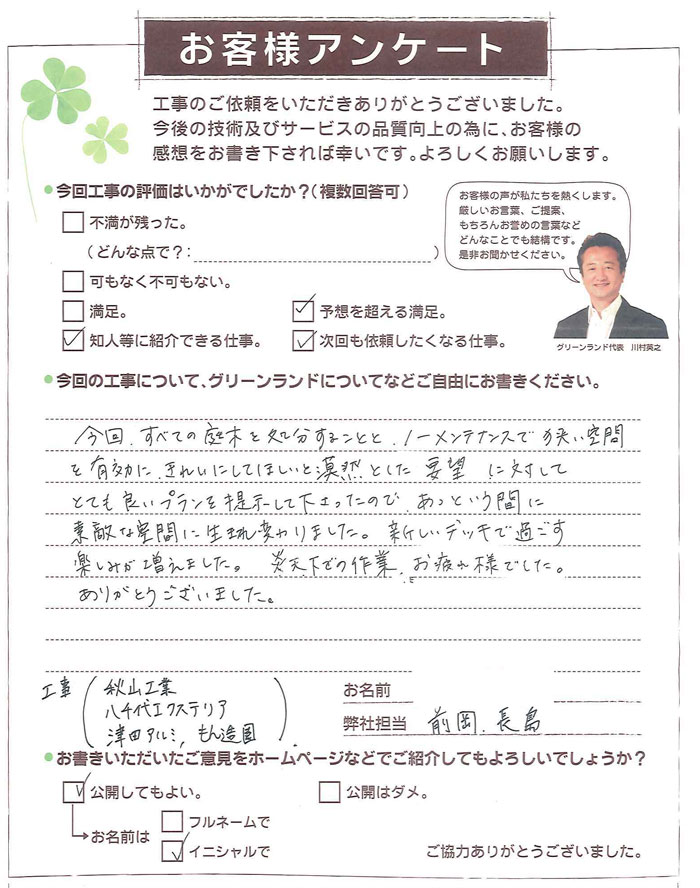 お客様アンケート
工事のご依頼をいただきありがとうございました。
今後の技術及びサービスの品質向上の為に、お客様の
感想をお書き下されば幸いです。よろしくお願いします。
●今回工事の評価はいかがでしたか？（複数回答可）
□不満が残った。
（どんな点で？：　　　　）
□可もなく不可もない。
□満足。
☑予想を超える満足。
☑知人等に紹介できる仕事。
☑次回も依頼したくなる仕事。
お客様の声が私たちを熱くします。
厳しいお言葉、ご提案、
もちろんお誉めの言葉など
どんなことでも結構です。
是非お聞かせください。
グリーンランド代表　川村英之
●今回の工事について、グリーンランドについてなどご自由にお書きください。
今回、すべての庭木を処分することと、ノーメンテナンスで狭い空間
を有効に、きれいにしてほしいと漠然とした要望に対して
とても良いプランを提示して下さったので、あっという間に
素敵な空間に生まれ変わりました。新しいデッキで過ごす
楽しみが増えました。炎天下での作業、お疲れ様でした。
ありがとうございました。
工事（秋山工業
八千代エクステリア
津田アルミ、もん造園）
お名前
弊社担当　前岡、長島
●お書きいただいたご意見をホームページなどでご紹介してもよろしいでしょうか？
☑公開してもよい。
□公開はダメ。
→お名前は
□フルネームで
☑イニシャルで
ご協力ありがとうございました。